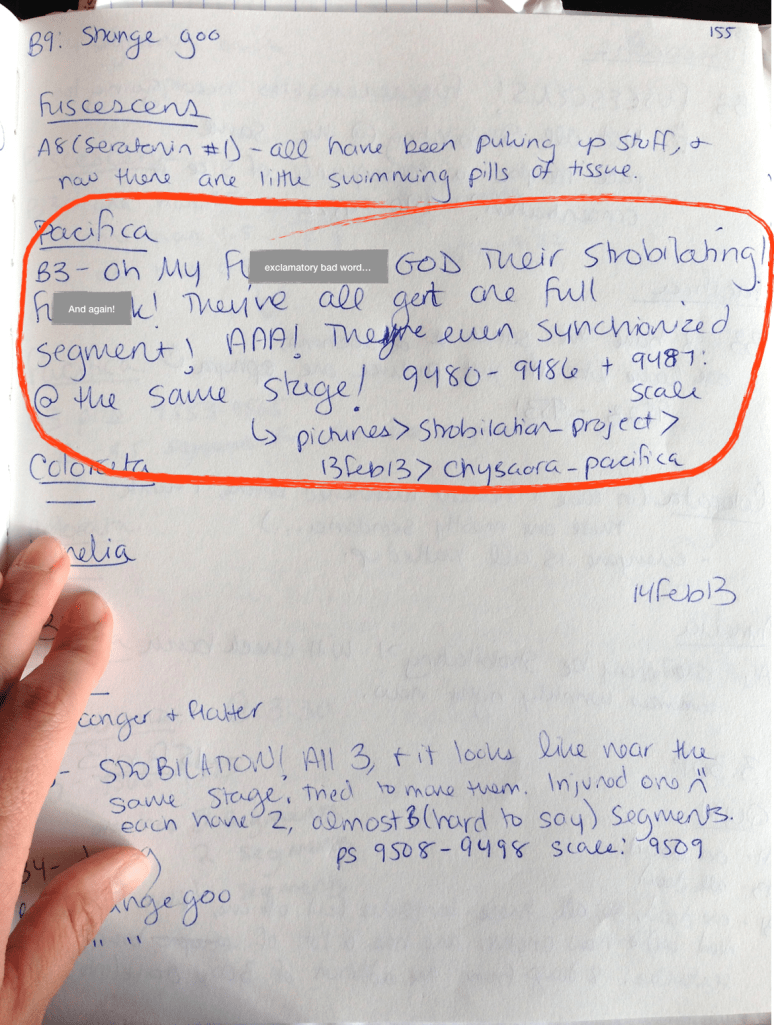 155
B9: Strange goo
Fuscescens
A8 (Seratonin #1) - all have been puking up stuff, +
now there are little swimming pills of tissue.
Pacifica
B3 - Oh My Fu exclamatory bad word... GOD Their Strobilating!
f And again! k! They've all gert one full
segment! AAA! They're even synchronized
@ the same stage! 9480 - 9486 + 9487:
scale
↳ pictures > Strobilation_project >
13feb13 > chysaora_pacifica
Colorata
elia
14feb13
longer + flatter
- STROBILATION! All 3, + it looks like near the
same stage. tried to move them. Injured one
each have 2, almost 3 (hard to say) segments.
ps 9508 - 9498 scale: 9509
B4-
ange goo
" "